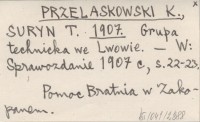 PRZELASKOWSKI K.,
SURYN T. 1907. Grupa
technicka we Lwowie. — W:
Sprawozdanie 1907 c, s. 22-23.
Pomoc Bratnia w Zako-
panem.